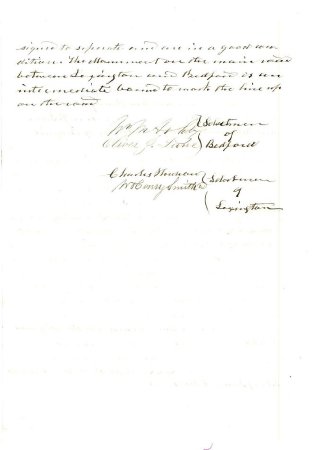 signed to seperate and are in a good con
dition. The Monument on the main road
between Lexington and Bedford is an
intermediate bound to mark the line up
on the road
Selectmen
of
Bedford
Oliver J.
Charles
Wm Henry Smith
Selectmen
of
Lexington